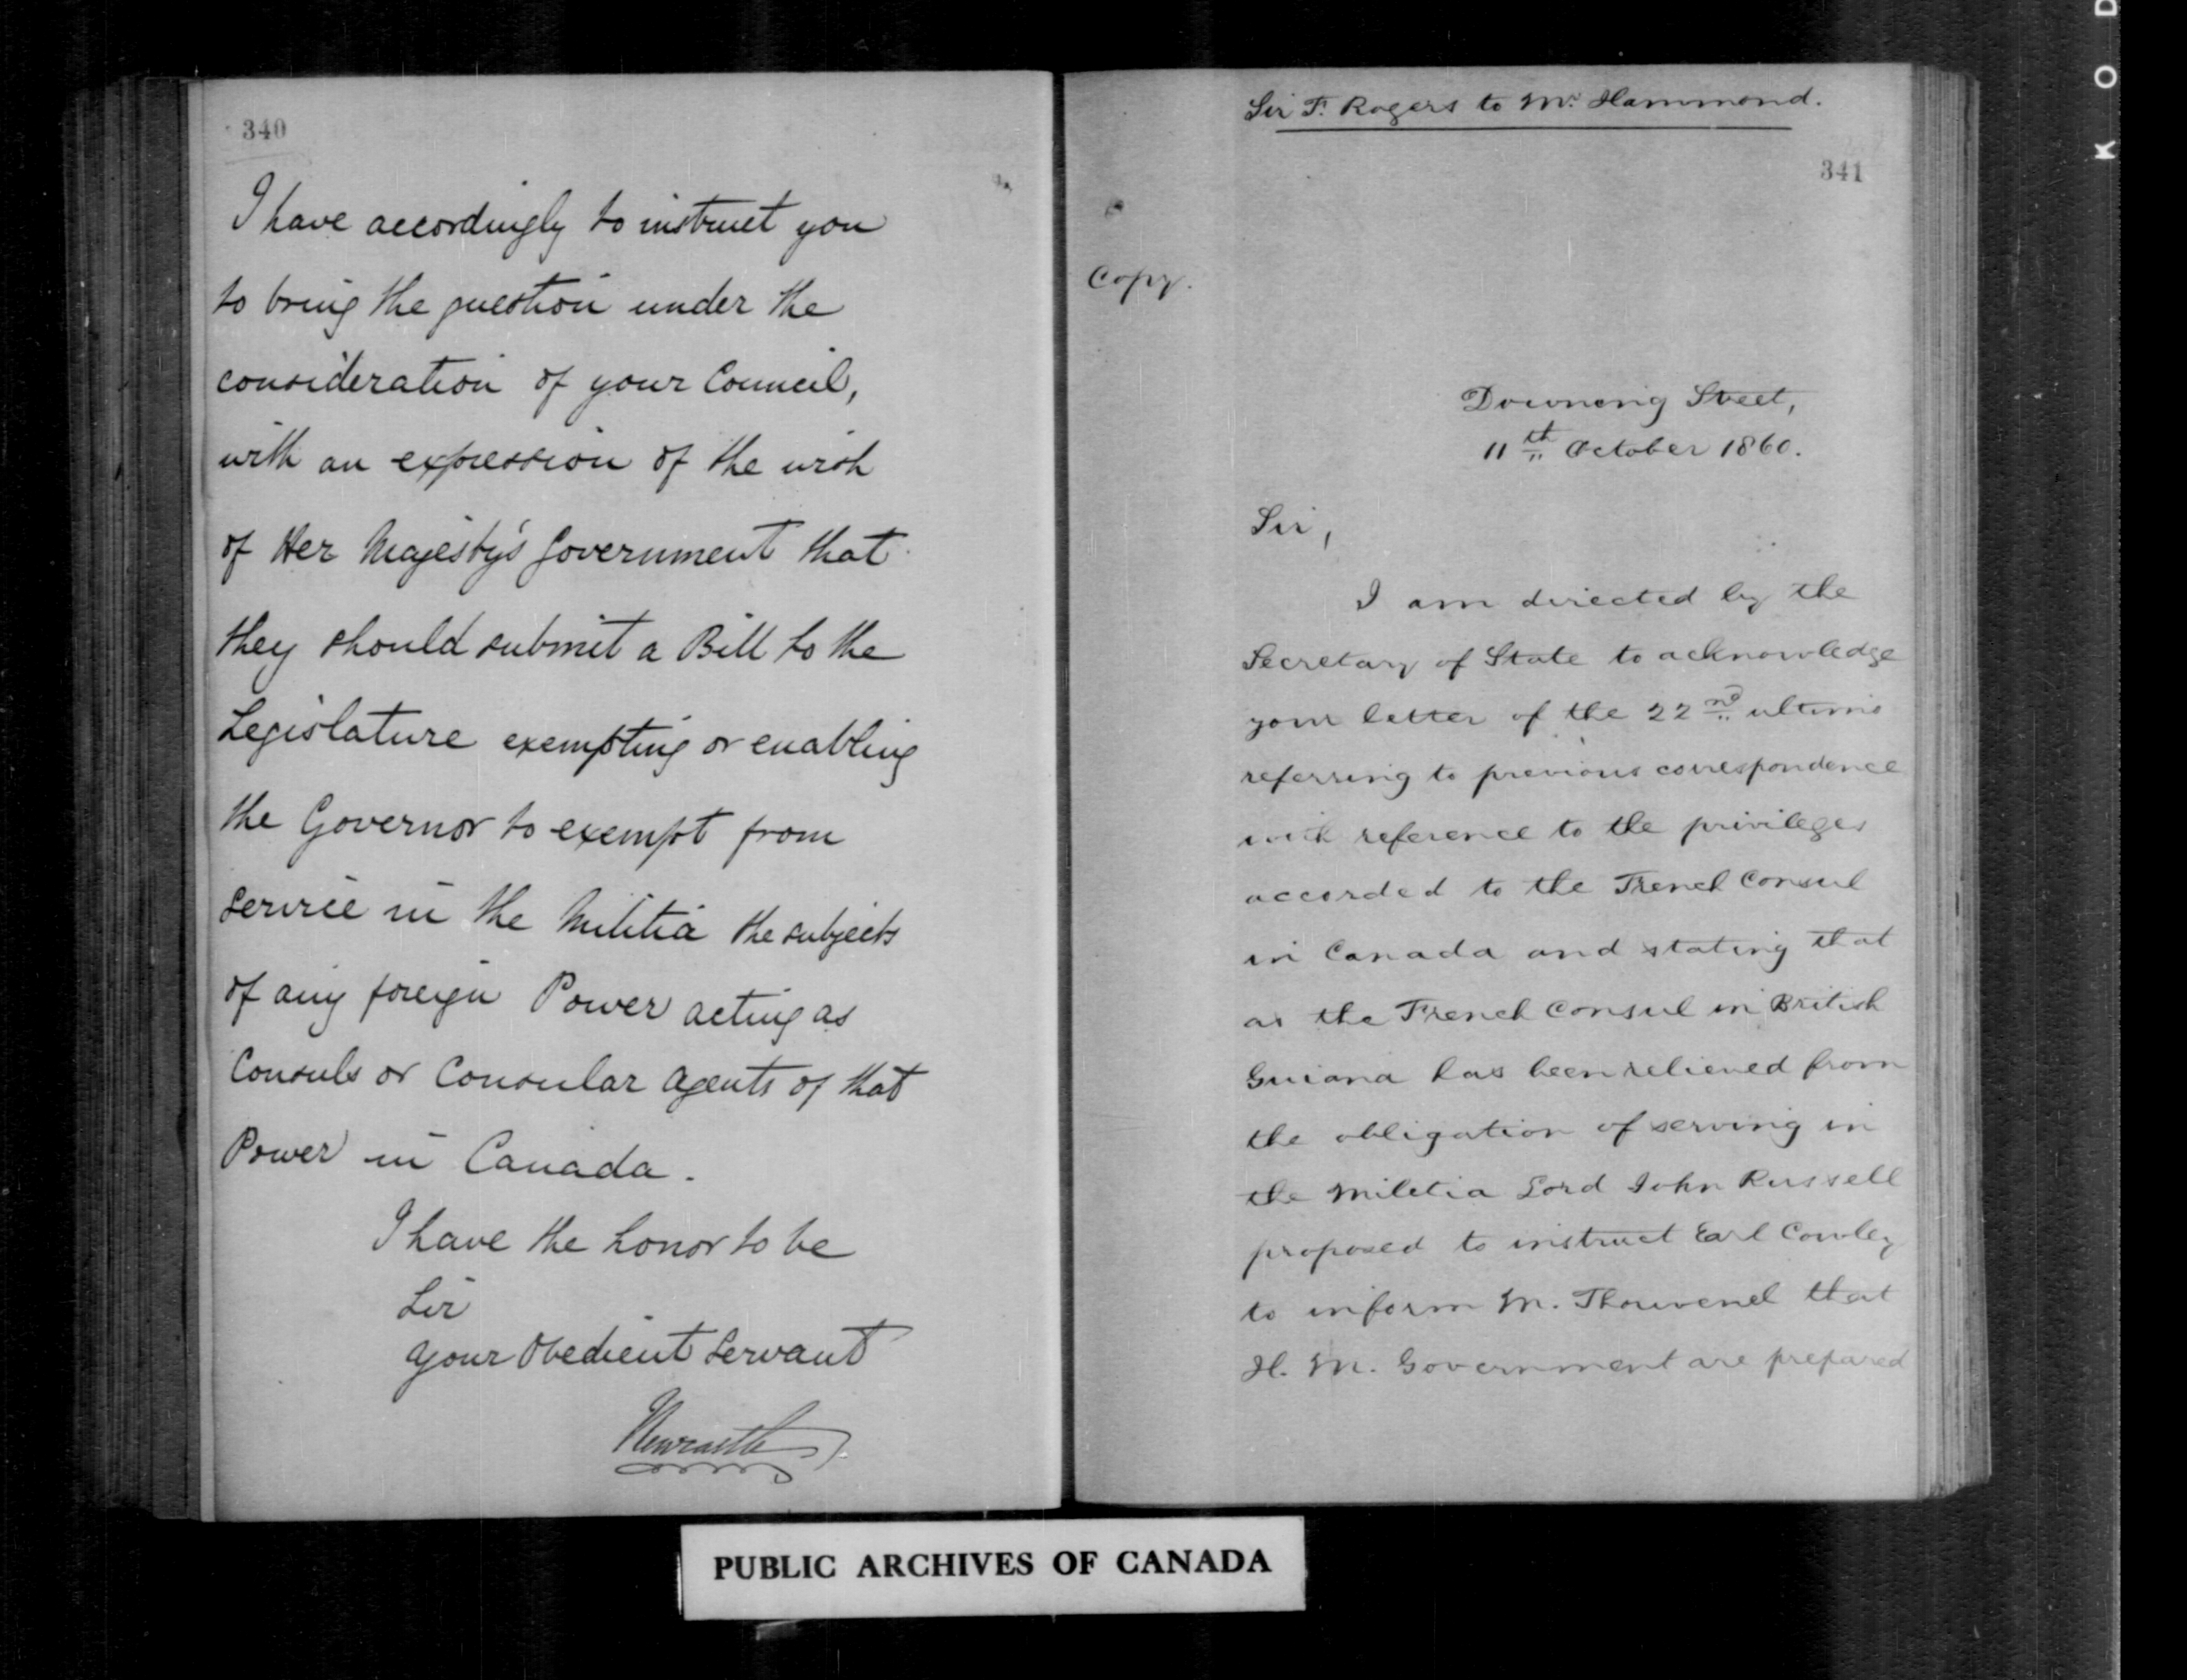 340
I have accordingly to instruct you
to bring the question under the
consideration of your Council,
with an expression of the wish
of Her Majesty's Government that
they should submit a Bill to the
Legislature exempting or enabling
the Governor to exempt from
service in the Militia the subjects
of any foreign Power acting as
Consuls or Consular Agents of that
Power in Canada.
I have the honor to be
Sir
your Obedient Servant
Newcastle
Sir F. Rogers to Mr. Hammond.
341
Copy.
Downing Street,
11th October 1860.
Sir,
I am directed by the
Secretary of State to acknowledge
your letter of the 22nd ultimo
referring to previous correspondence
with reference to the privileges
accorded to the French Consul
in Canada and stating that
as the French Consul in British
Guiana has been relieved from
the obligation of serving in
the Militia Lord John Russell
proposed to instruct Earl Cowley
to inform M. Thouvenel that
H. M. Government are prepared
PUBLIC ARCHIVES OF CANADA
K O D